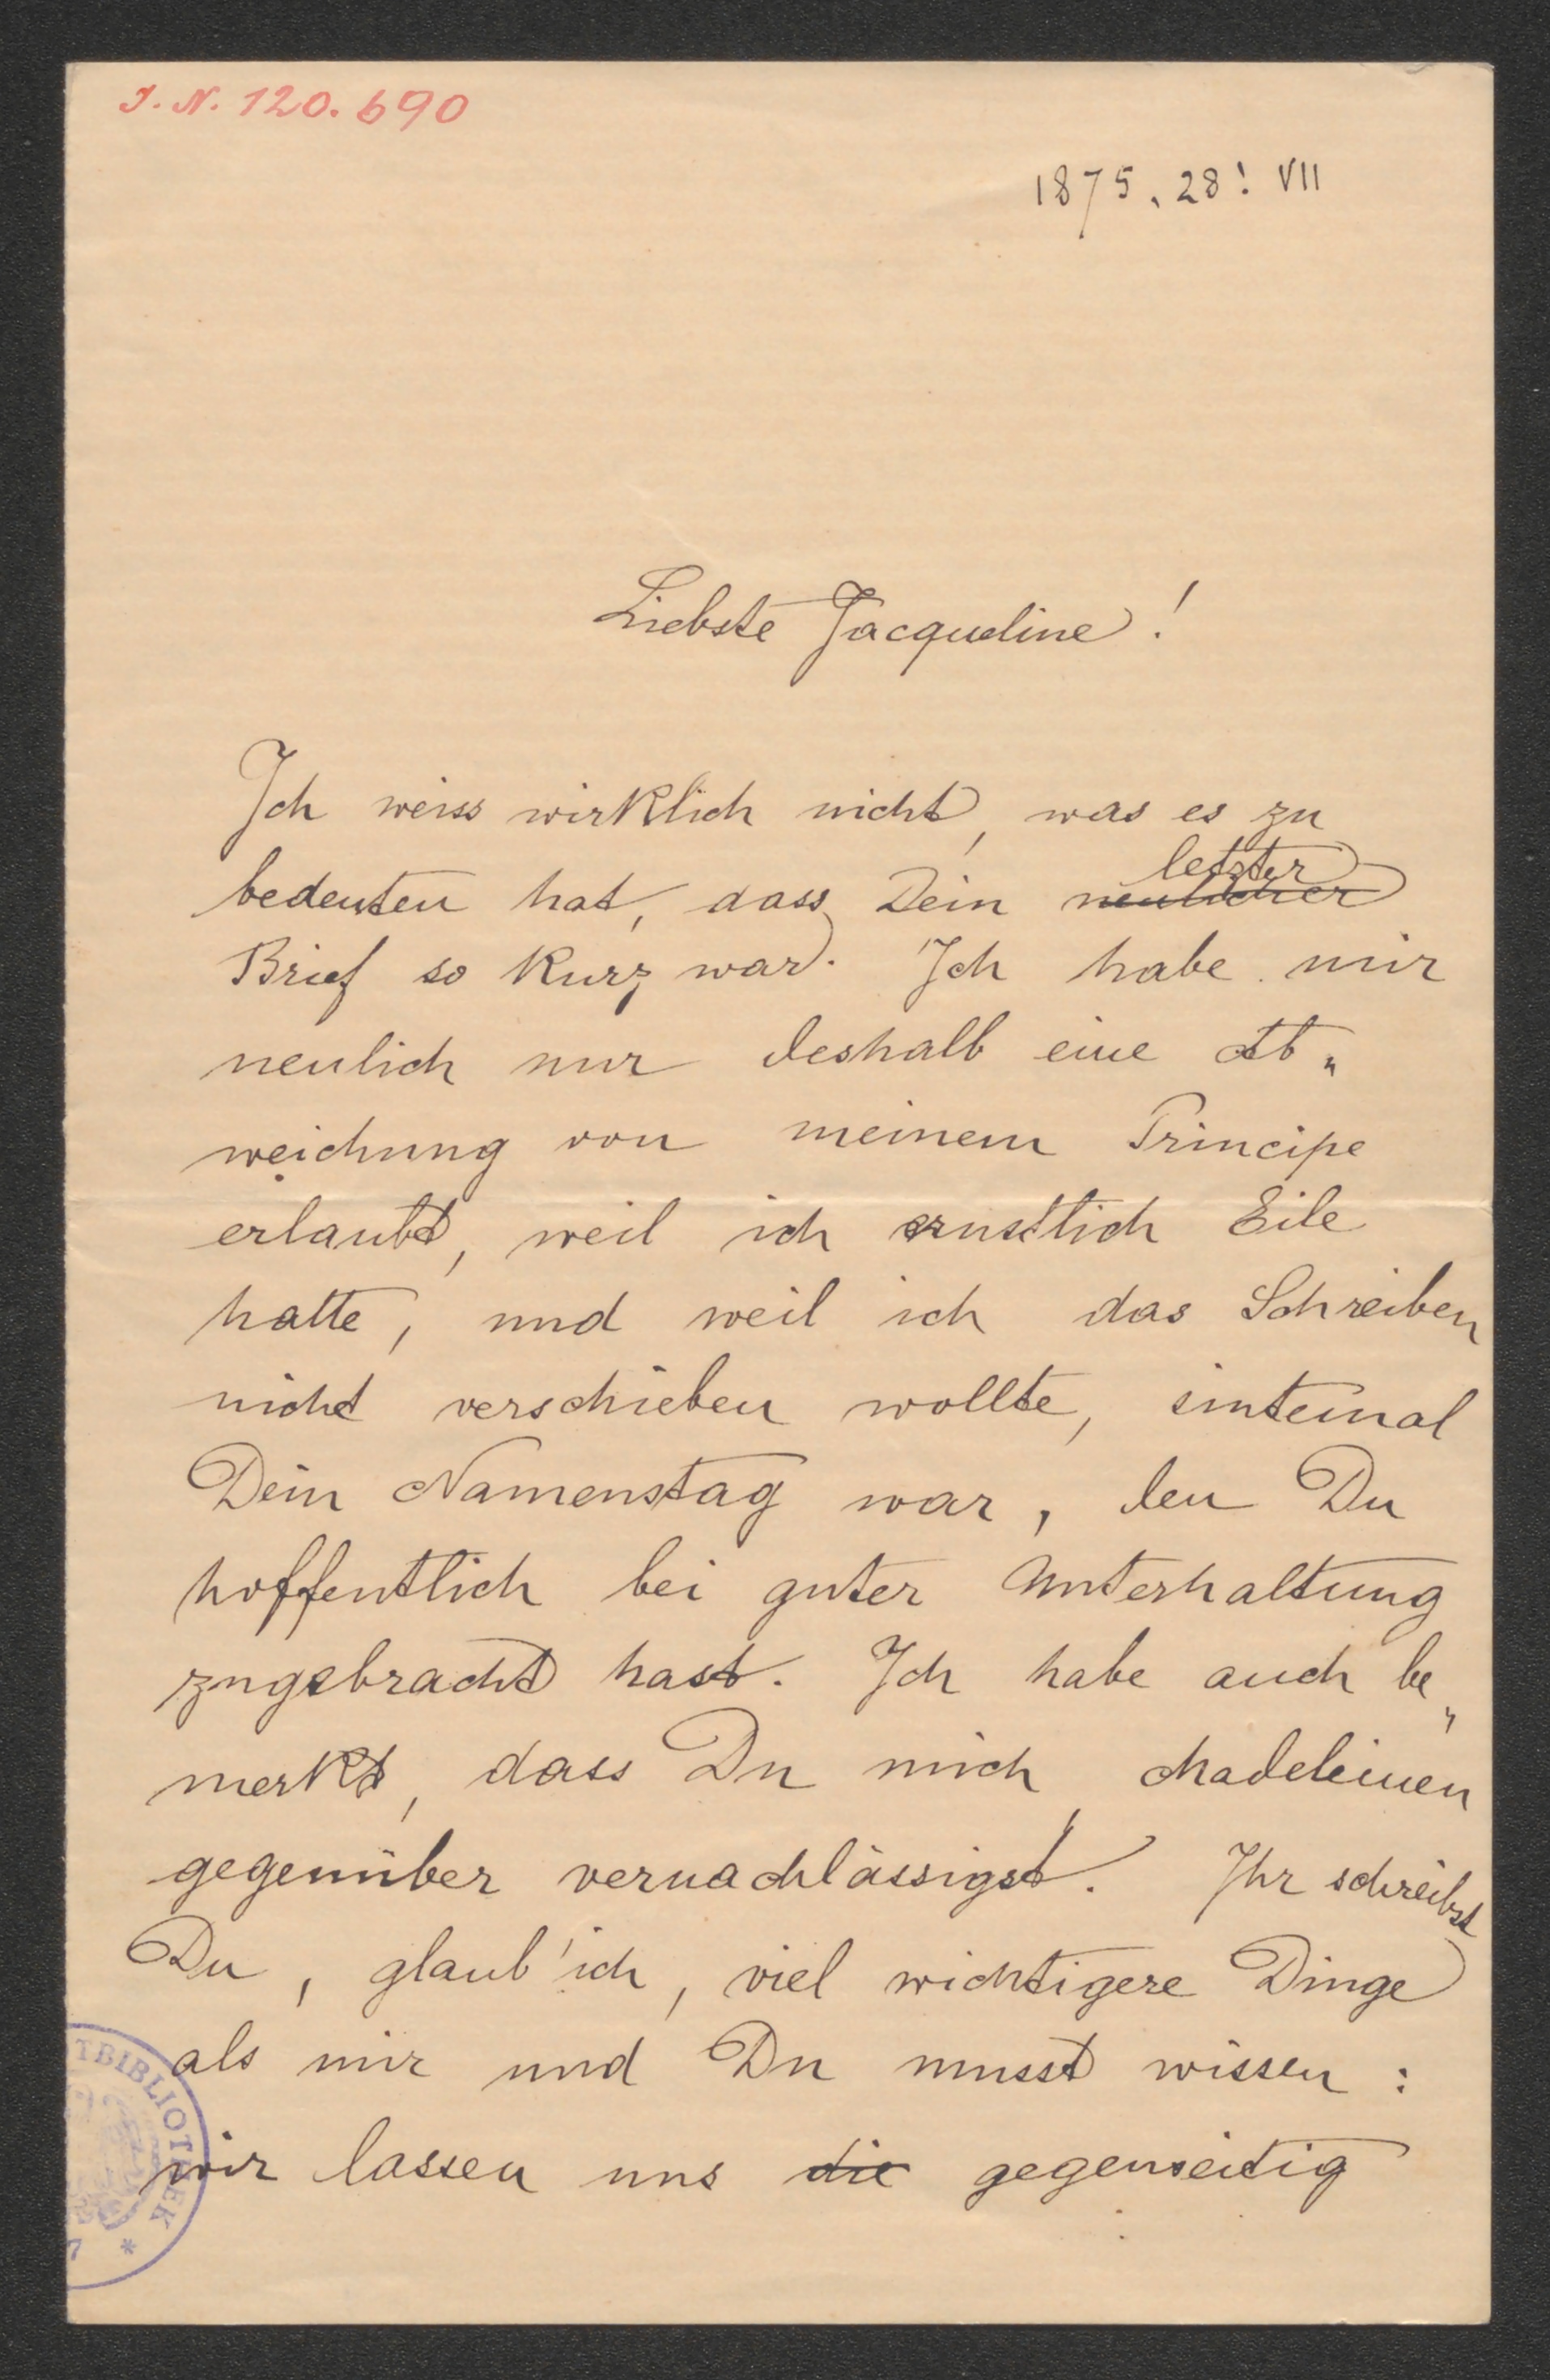 J. N. 120.690
1875. 28! VII
Liebste Jacqueline!
Ich weiss wirklich nicht, was es zu
letzter
bedeuten hat, dass Dein neulicher
Brief so kurz war. Ich habe mir
neulich nur deshalb eine Ab„
weichung von meinem Principe
erlaubt, weil ich ernstlich Eile
hatte, und weil ich das Schreiben
nicht verschieben wollte, sintemal
Dein Namenstag war, den Du
hoffentlich bei guter Unterhaltung
zugebracht hast. Ich habe auch be„
merkt, dass Du mich Madeleinen
gegenüber vernachlässigst. Ihr schreibst
Du, glaub' ich, viel wichtigere Dinge
als mir und Du musst wissen:
wir lassen uns die gegenseitig
TBIBLIOTHEK
7 *